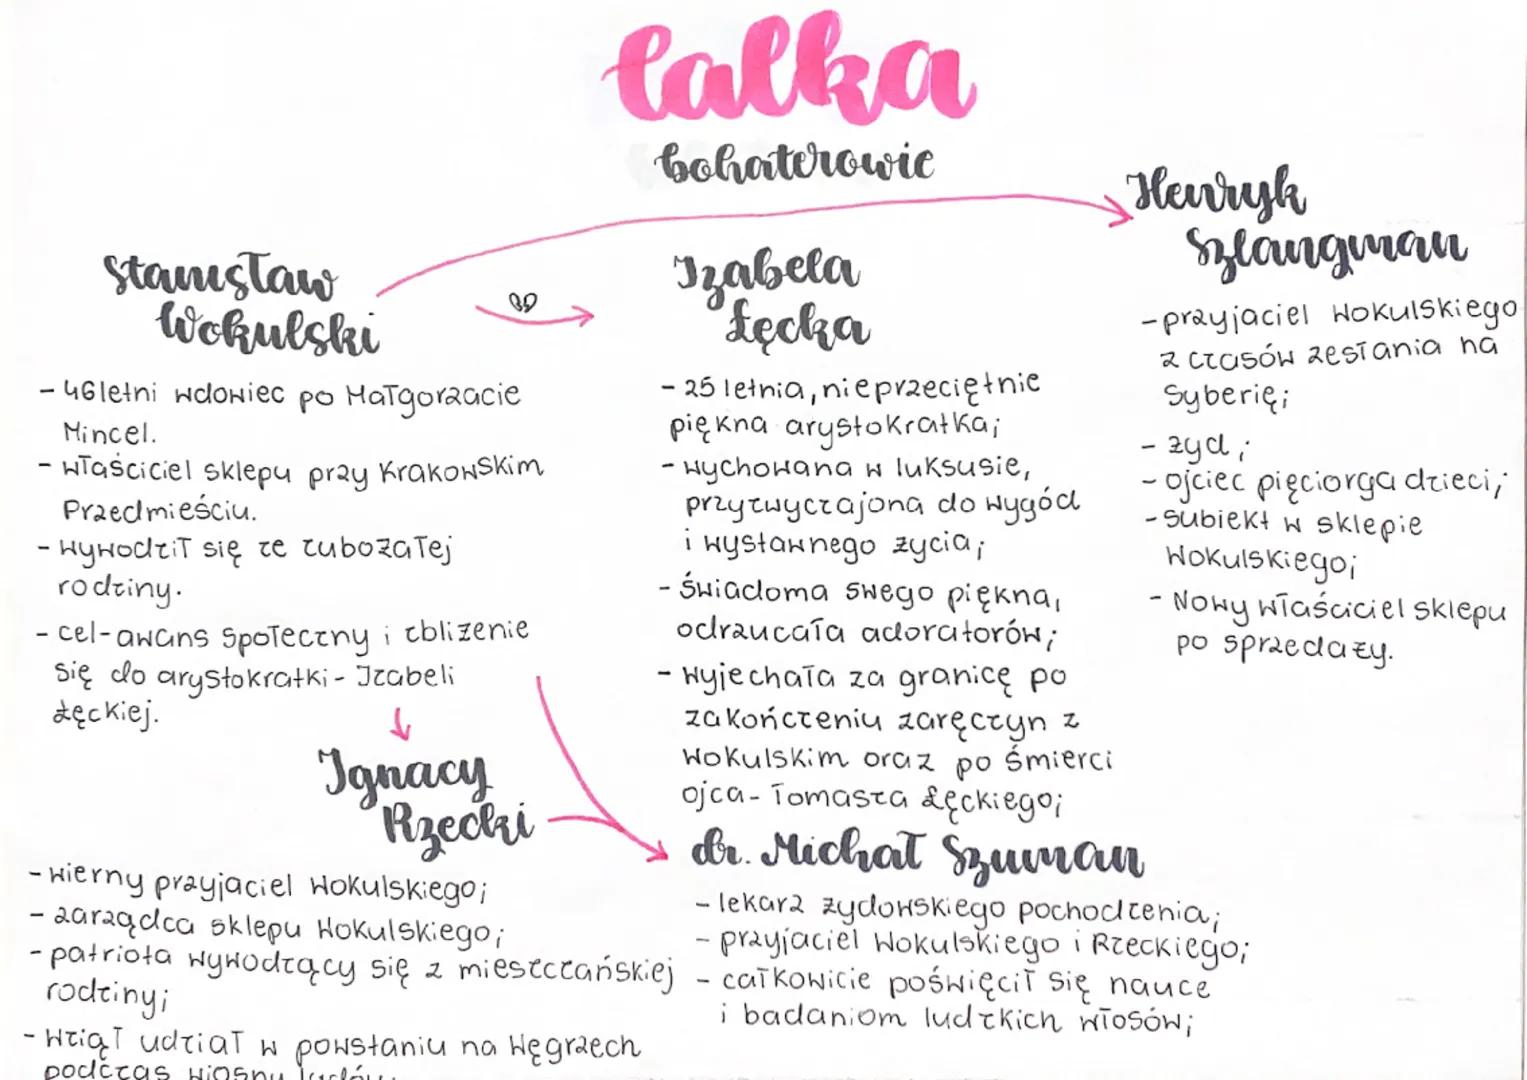 lalka
bohaterowie
Stanisław
Wokulski
- 46letni wdowiec po Małgorzacie
Mincel.
- właściciel sklepu przy Krakowskim
Przedmieściu.
- wywodził się ze zubożałej
rodziny.
- cel-awans społeczny i zbliżenie
się do arystokratki - Izabeli
Łęckiej.
Izabela
Łęcka
- 25 letnia, nieprzeciętnie
piękna arystokratka;
- wychowana w luksusie,
przyzwyczajona do wygód
i wystawnego życia;
- świadoma swego piękna,
odrzucała adoratorów;
- wyjechała za granicę po
zakończeniu zaręczyn z
Wokulskim oraz po śmierci
ojca - Tomasza Łęckiego;
Henryk
Szlangman
- przyjaciel Wokulskiego
z czasów zesłania na
Syberię;
- żyd;
- ojciec pięciorga dzieci;
- subiekt w sklepie
Wokulskiego;
- Nowy właściciel sklepu
po sprzedaży.
Ignacy
Rzecki
- wierny przyjaciel Wokulskiego;
- zarządca sklepu Wokulskiego;
- patriota wywodzący się z mieszczańskiej
rodziny;
- wziął udział w powstaniu na Węgrzech
podczas wiosny ludów
dr. Michał Szuman
- lekarz żydowskiego pochodzenia;
- przyjaciel Wokulskiego i Rzeckiego;
- całkowicie poświęcił się nauce
i badaniom ludzkich włosów;